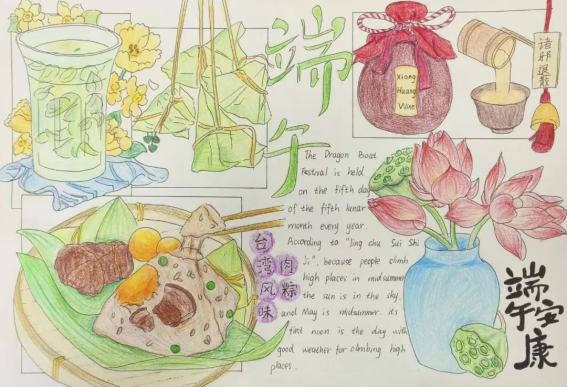 端
午
Xiong
Huang
Wine
诸邪退散
The Dragon Boat
Festival is held
on the fifth day
of the fifth lunar
month every year.
According to "Jing chu Sui Shi
Ji", because people climb
high places in midsummer
the sun is in the sky,
and May is midsummer. its
first noon is the day with
good weather for climbing high
places.
台湾风味
肉粽
端午安康